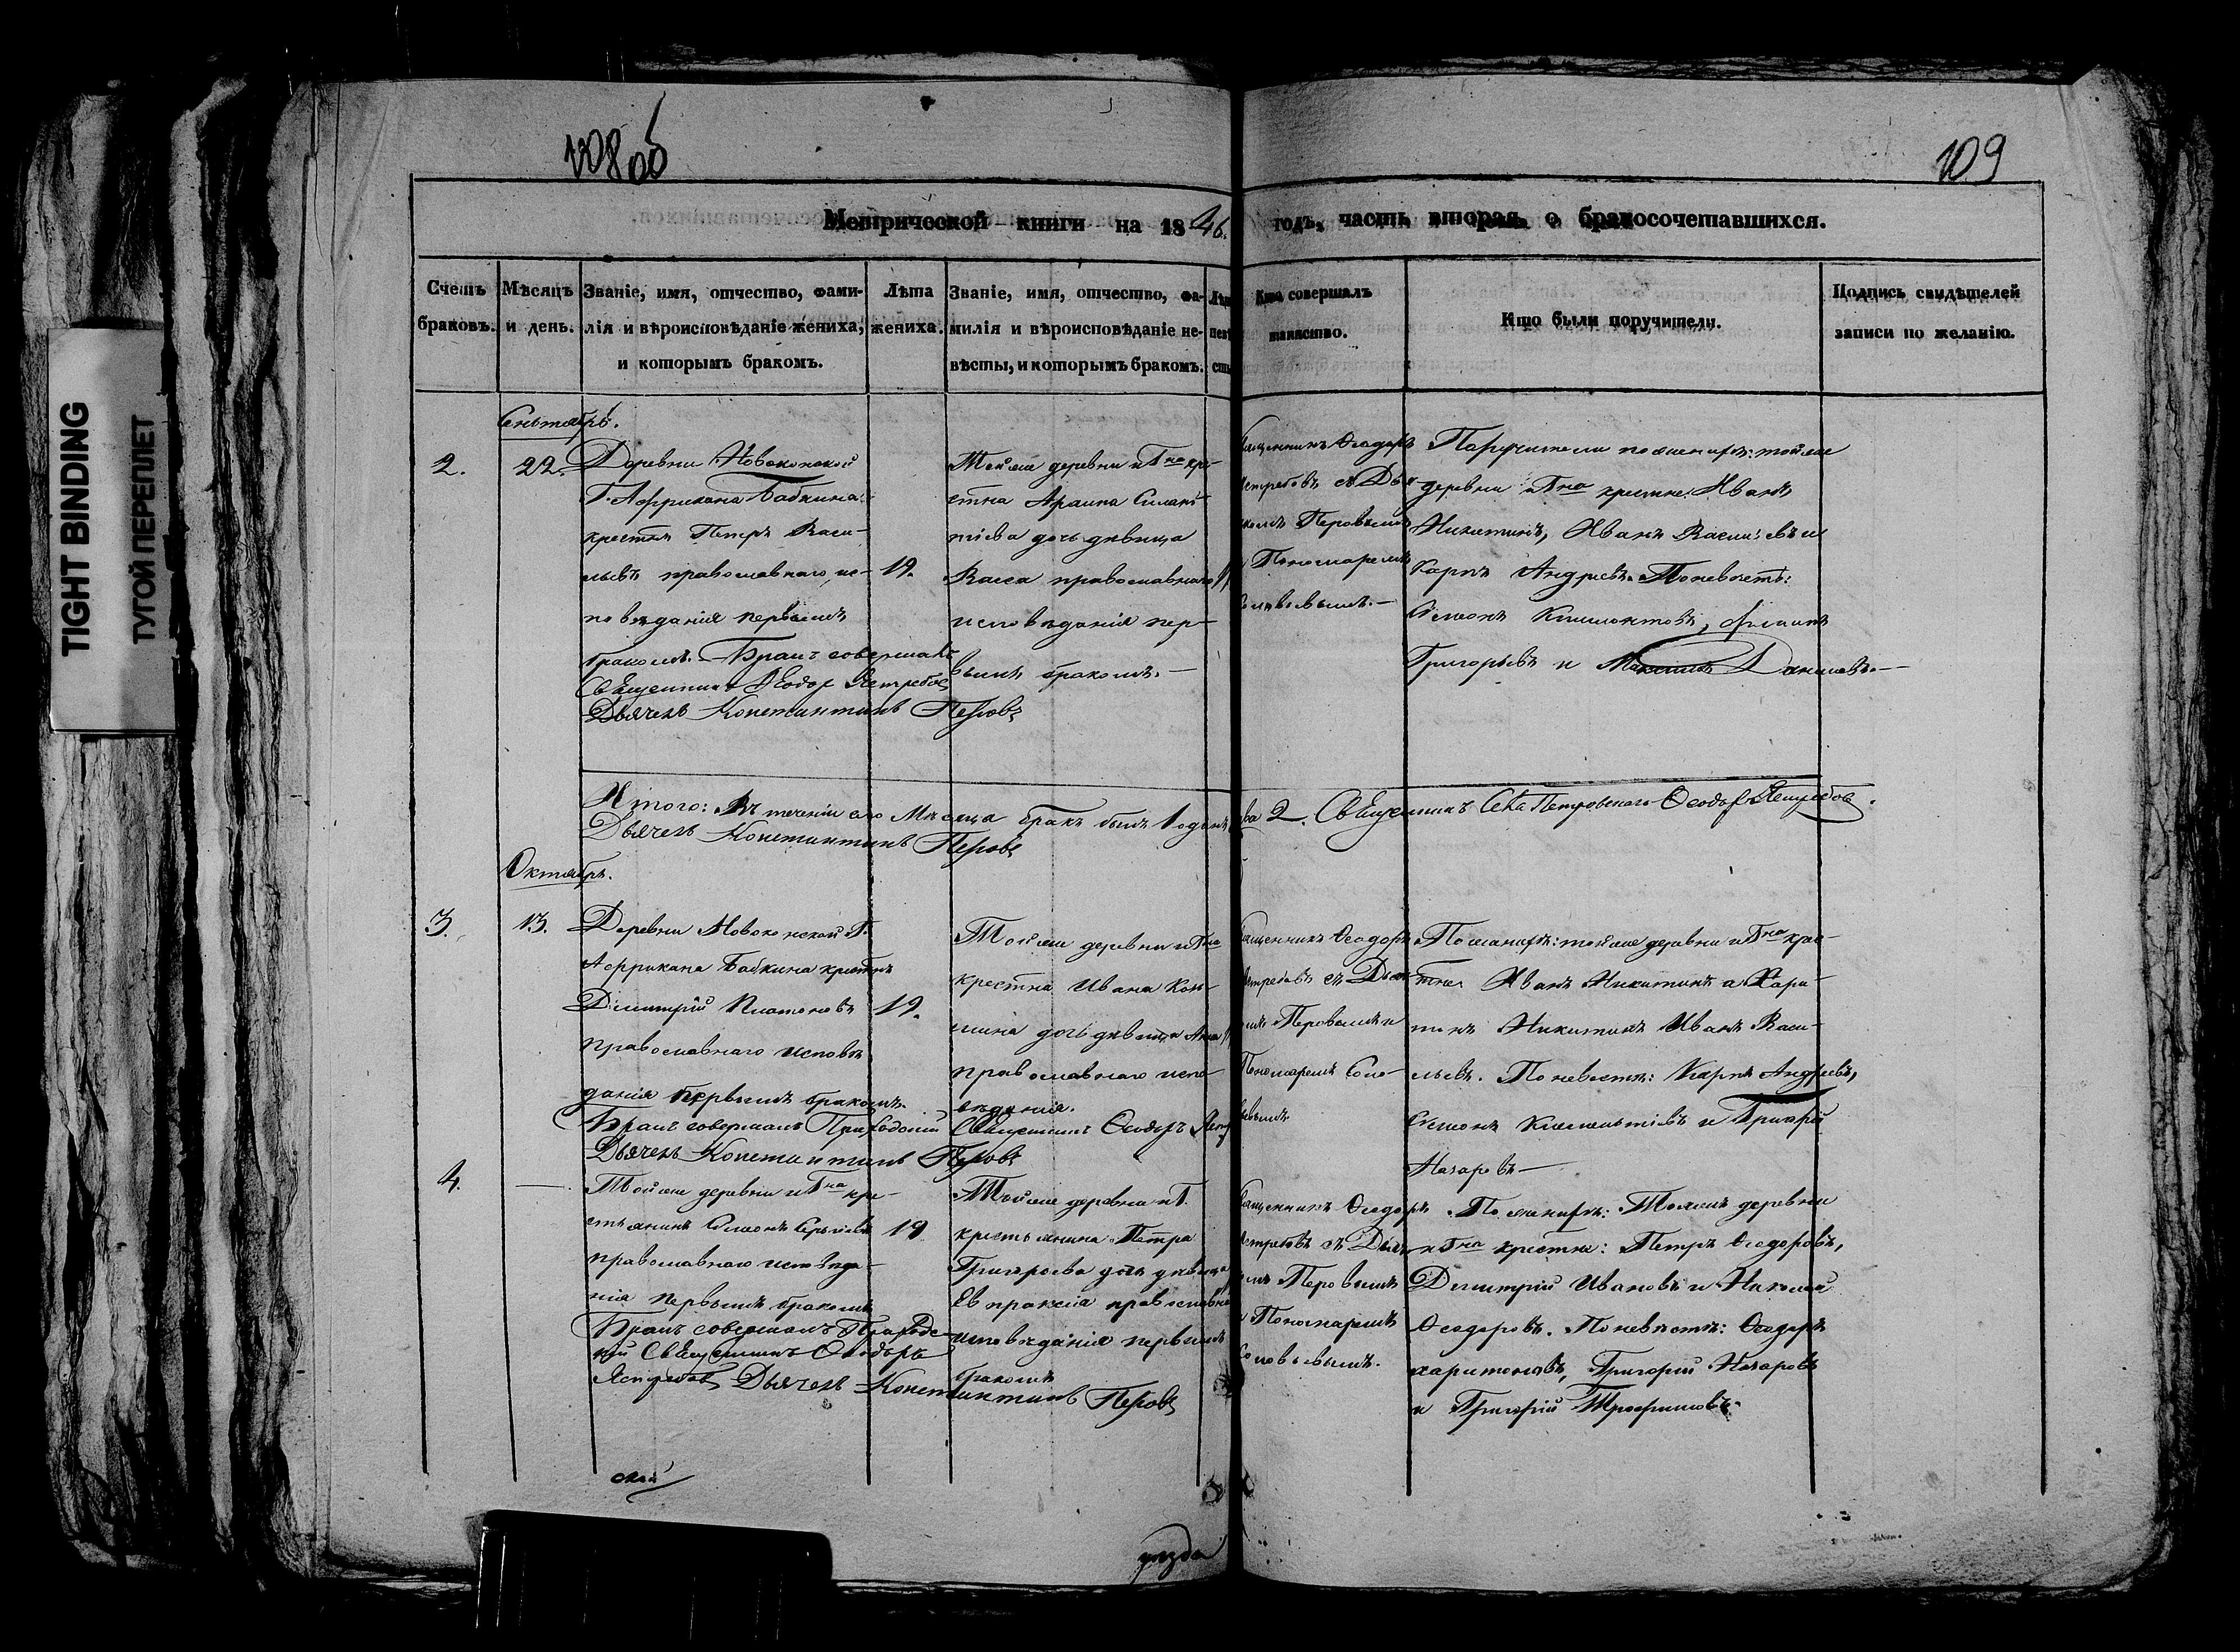 TIGHT BINDING
ТУГОЙ ПЕРЕПЛЕТ
108об
109
Метрической книги на 1846.
годъ, часть вторая о бракосочетавшихся.
Счетъ браковъ.
Мѣсяцъ и день.
Званіе, имя, отчество, фами-
лія и вѣроисповѣданіе жениха,
и которымъ бракомъ.
Лѣта
жениха.
Званіе, имя, отчество, фа-
милія и вѣроисповѣданіе не-
вѣсты, и которымъ бракомъ.
Кто совершалъ
таинство.
Кто были поручители.
Подпись свидѣтелей
записи по желанію.
Сентябрь.
2.
22.
Деревни Новоконской
Г. Аффрикана Бабкина
крестян Петръ Васи-
льевъ православнаго ис-
повѣданія первымъ
бракомъ. Бракъ совершалъ
Священникъ Ѳеодор Ястребов
Дьячекъ Константинъ Перовъ
19.
Тойже деревни и Гна кре-
стна
дочь дѣвица
Васса православнаго
исповѣданія пер-
вымъ бракомъ.—
Священникъ Ѳеодоръ
Ястребовъ съ Дья-
Перовымъ
Пономаремъ
Поручители по женихѣ: тойже
деревни и Гна крестне: Иванъ
Никитинъ, Иванъ Васильевъ и
Карпъ Андреевъ. По невѣстѣ:
Симонъ Климонтовъ,
Григорьевъ и Максимъ Даниловъ.—
Итого: Въ теченіи сего Мѣсяца бракъ былъ 1 одинъ
2. Священникъ Села Петровскаго Ѳеодоръ Ястребов.
Дьячекъ Константинъ Перовъ
Октябрь.
3.
13.
Деревни Новоконской Г.
Аффрикана Бабкина крестнъ
Димитрій Платоновъ
православнаго исповѣ
данія первымъ бракомъ.
Бракъ совершалъ Приходскій Священникъ Ѳеодоръ
Дьячекъ Константинъ Перовъ
19.
Тойже деревни и Гна
крестна Ивана Козь-
мина дочь дѣвица Анна
православнаго испо-
вѣданія.
Священникъ Ѳеодоръ
Ястребовъ съ Дьяч
Перовымъ и
Пономаремъ Соло-
вьевымъ
По женихѣ: тойже деревни и Гна крес-
тне: Иванъ Никитинъ а Хари-
тонъ Никитинъ Иванъ Васи-
льевъ. По невѣстѣ: Карпъ Андреевъ,
Симонъ Климонтовъ и Григорій
Назаровъ—
4.
—
Тойже деревни и Гна кре-
стьянинъ Симонъ Сергѣевъ
православнаго исповѣда-
нія первымъ бракомъ
Бракъ совершалъ Приходс-
кій Священникъ Ѳеодоръ
Ястребовъ Дьячекъ Константинъ Перовъ
19
Тойже деревни и Г.
крестьянина Петра
Григорьева дочь дѣвица
Евпраксія православнаго
исповѣданія первымъ
бракомъ
Священникъ Ѳеодоръ
Ястребовъ съ Дьяч
Перовымъ
и Пономаремъ
Соловьевымъ.
По женихѣ: Тойже деревни
и Гна крестне: Петръ Ѳеодоровъ,
Димитрій Ивановъ и Николай
Ѳеодоровъ. По невѣстѣ: Ѳеодоръ
Харитоновъ, Григорій Назаровъ
и Григорій Трофимовъ.
ской
уѣзда